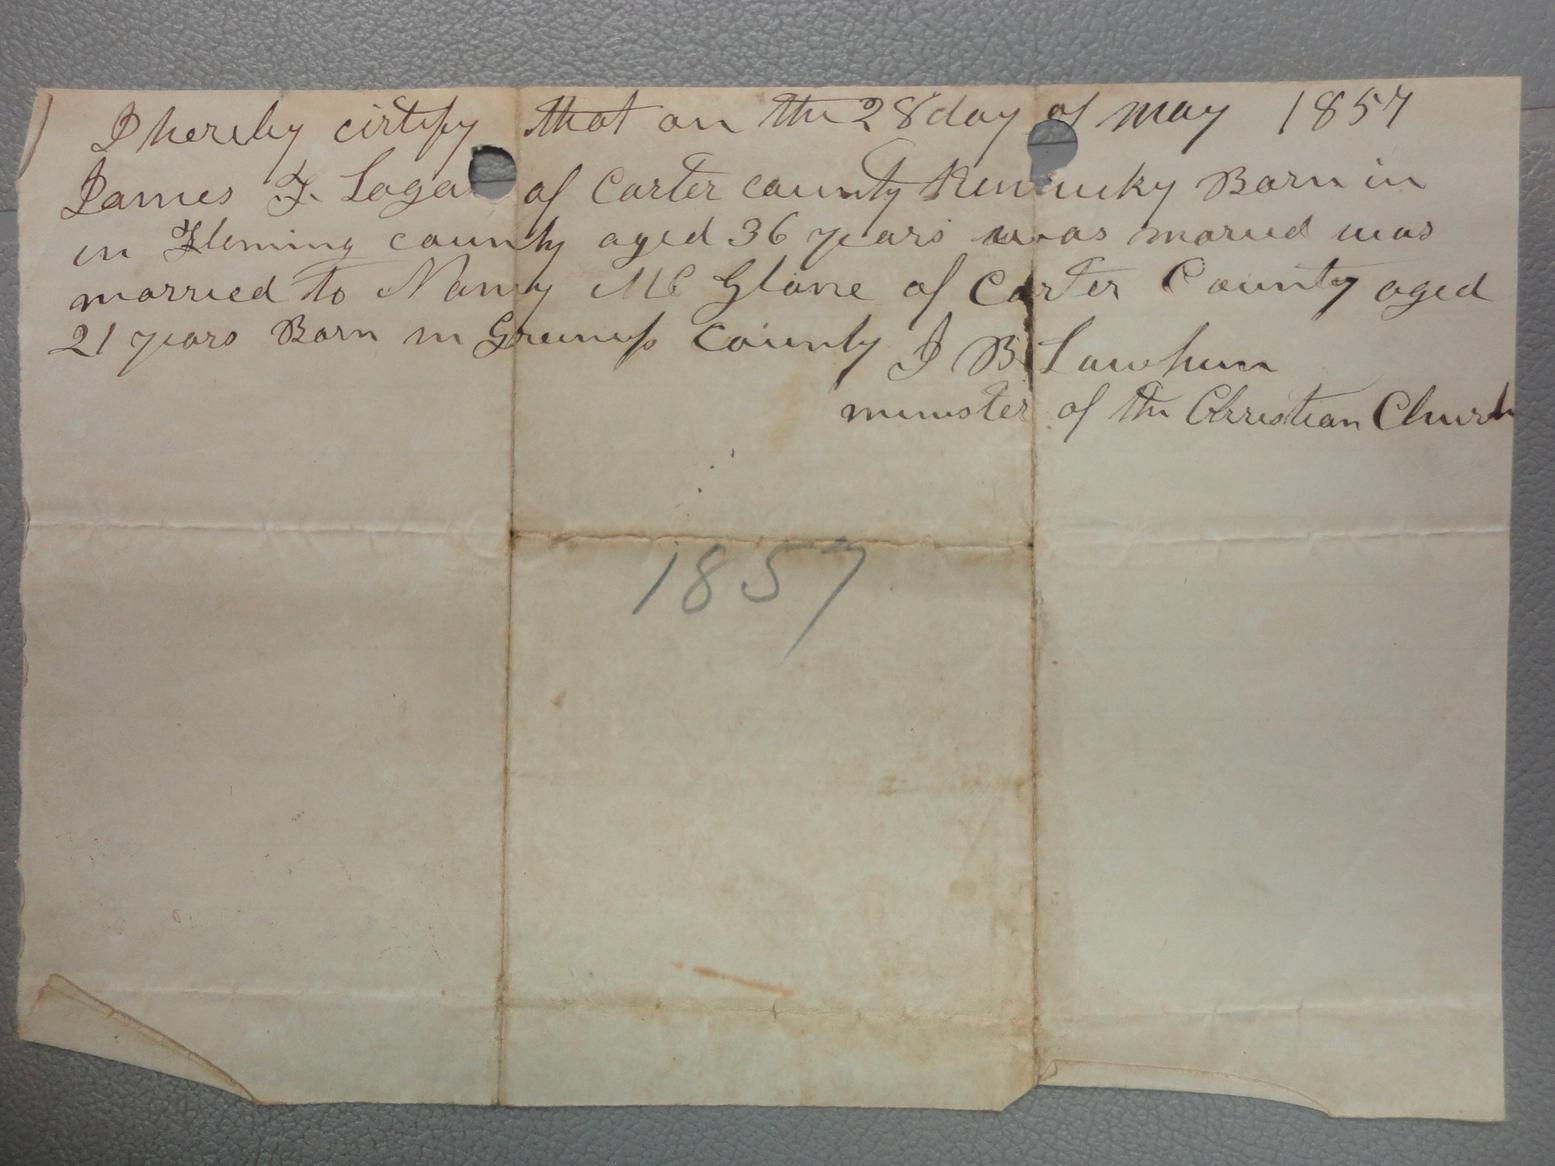 I hereby cirtify that on the 28 day of may 1857
James F. Loga of Carter county Kentucky Born in
in Fleming county aged 36 years was maried was
married to Nancy Mc Glone of Carter County aged
21 years Born in Greenup County J B Lawhun
minister of the Christian Church
1857